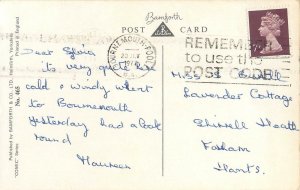 Bamforth
POST CARD
Printed in England
BOURNEMOUTH-POOLE
REMEMBER
to use the
POST CODE
7P
Dear Sylvia
it's very quiet here
cold & windy went
to Bournemouth
yesterday had a look
round
Maureen
Miss S.
Lavender Cottage
Shirrell Heath
Fareham
Hants.
Published by BAMFORTH & CO. LTD., Holmfirth, Yorkshire
No. 465
"COMIC" Series